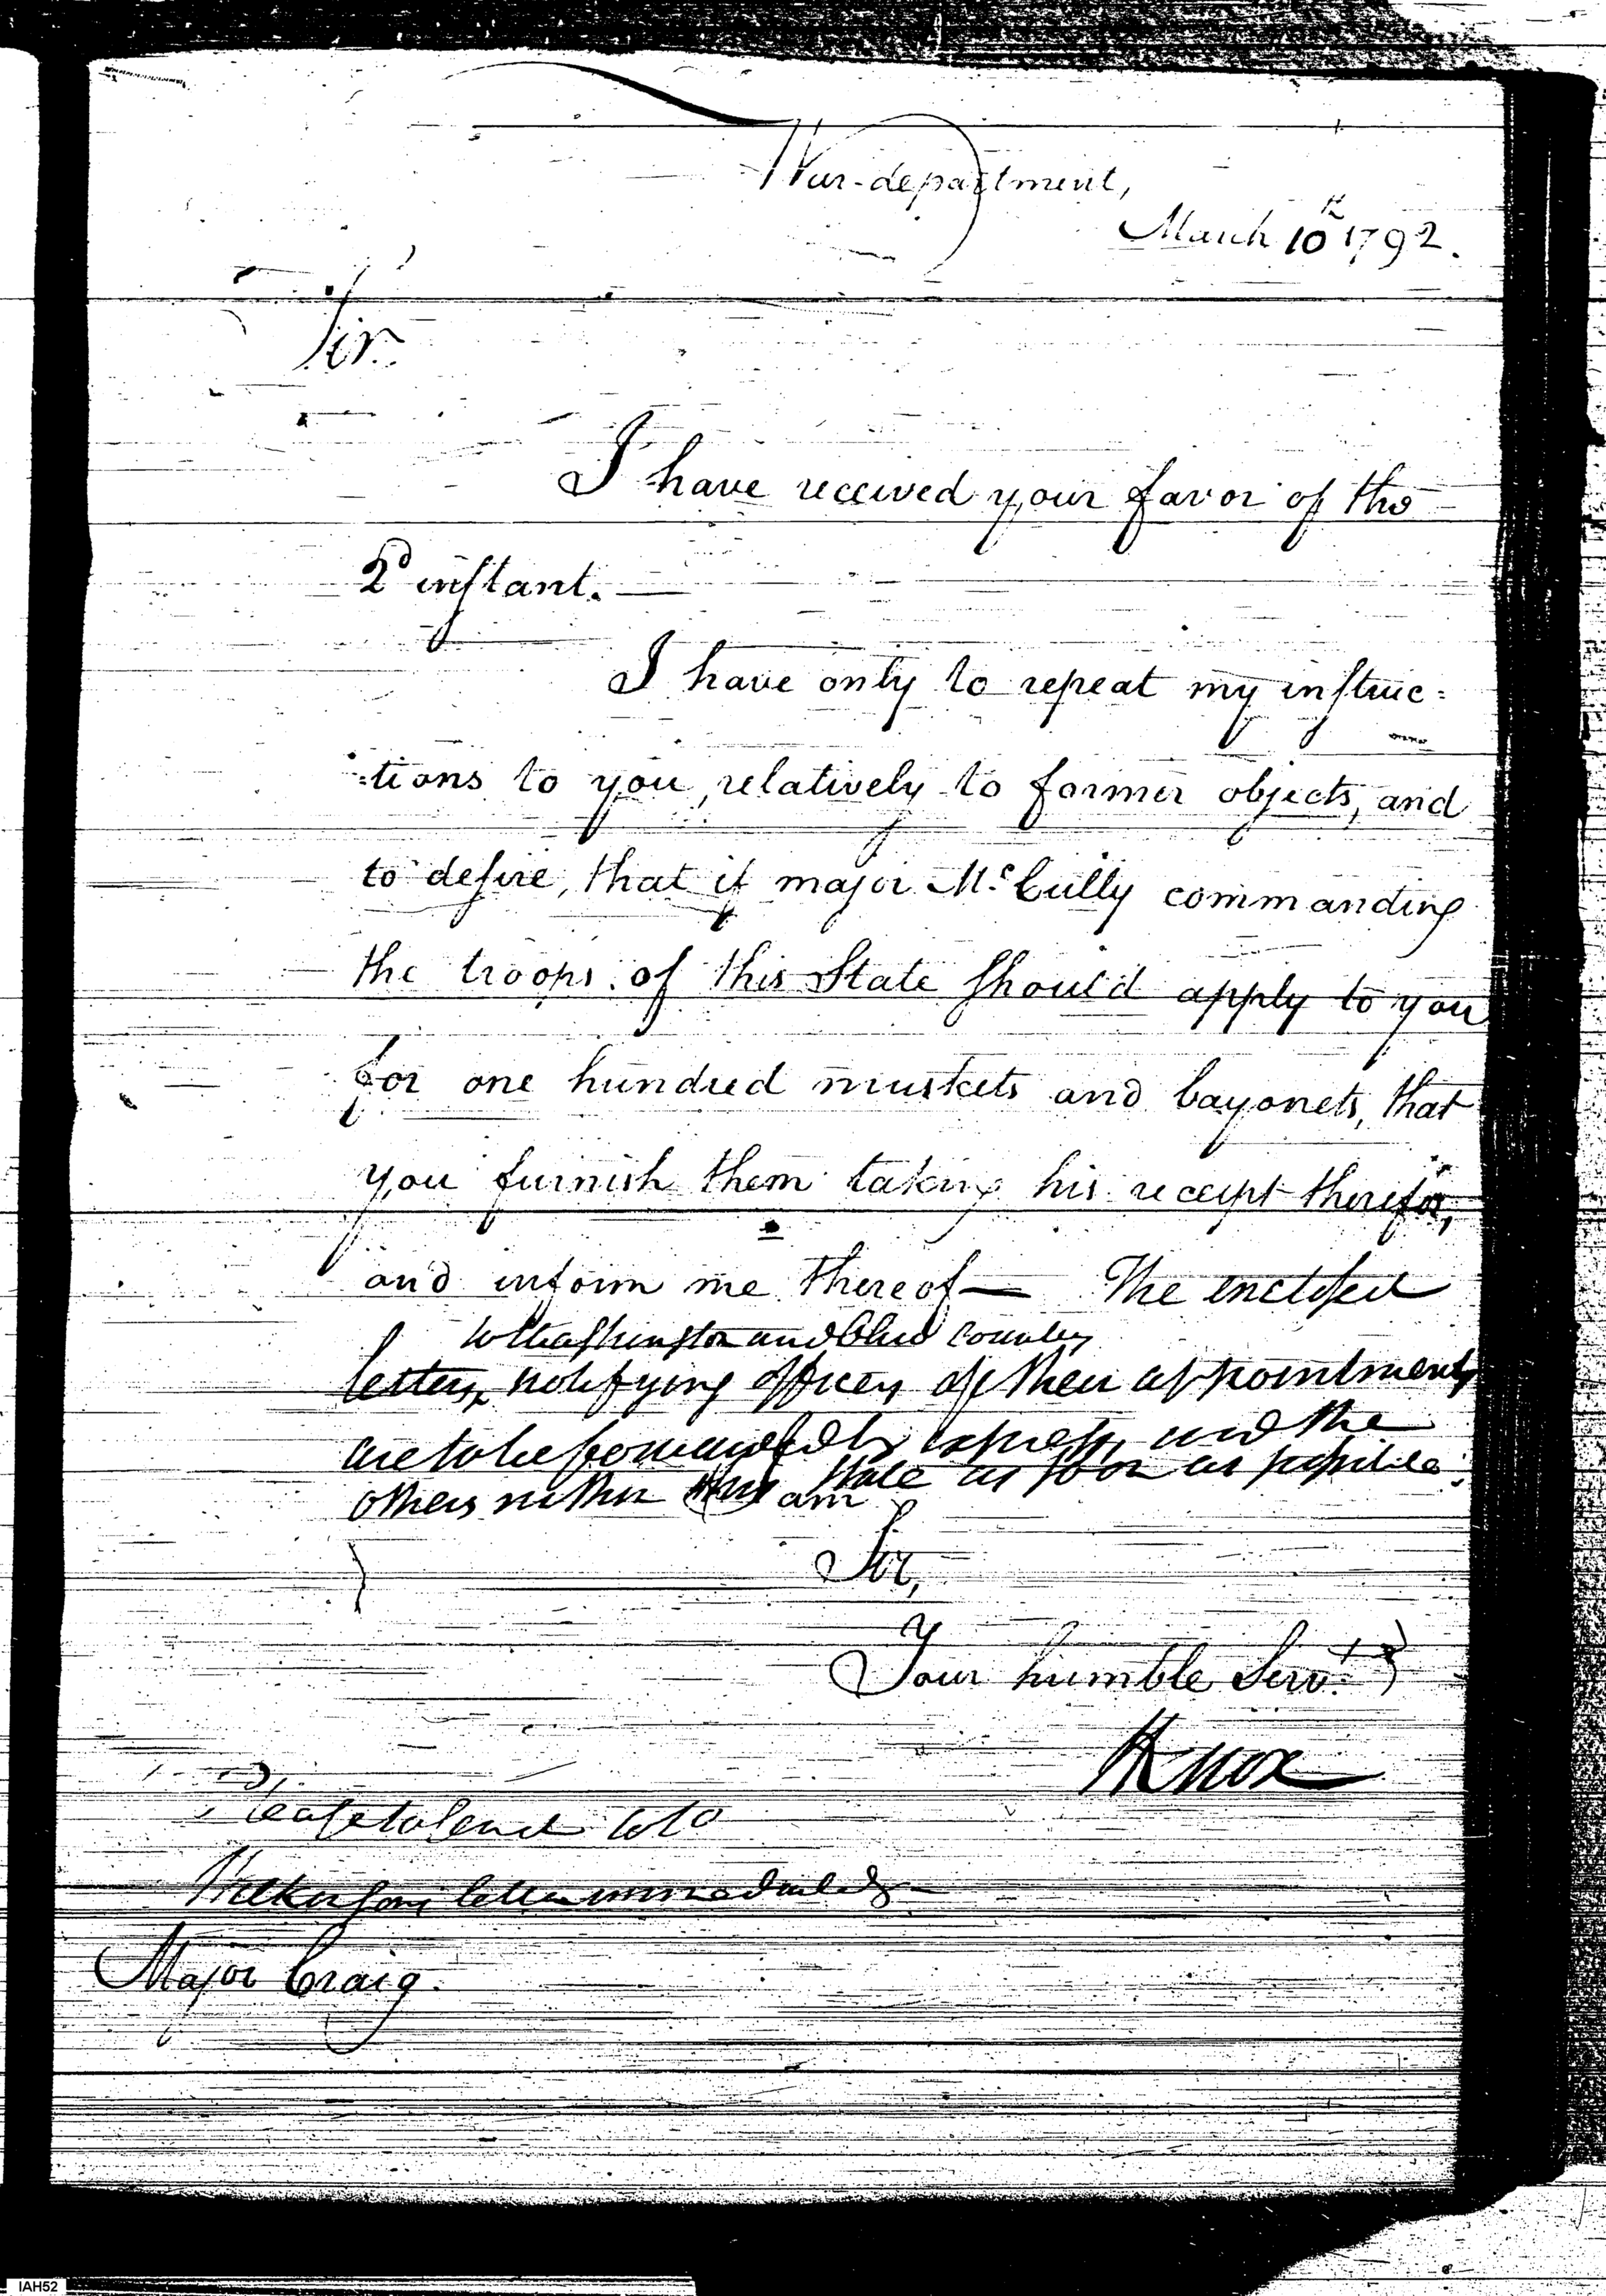 War-department,
March 10th 1792.
Sir.
I have received your favor of the
2d instant.
I have only to repeat my instruc=
=tions to you, relatively to former objects, and
to desire, that if major Mc.Cully commanding
the troops of this State should apply to you
for one hundred muskets and bayonets, that
you furnish them taking his receipt therefor,
and inform me thereof— The enclosed
to Washington and Ohio County
letters, notifying officers of their appointments
are to be forwarded by express, and the
others within this State as soon as possible.
I am
Sir,
Your humble Servt.
HKnox
Please to send Col
Wilkinsons letter immediately
Major Craig.
IAH52